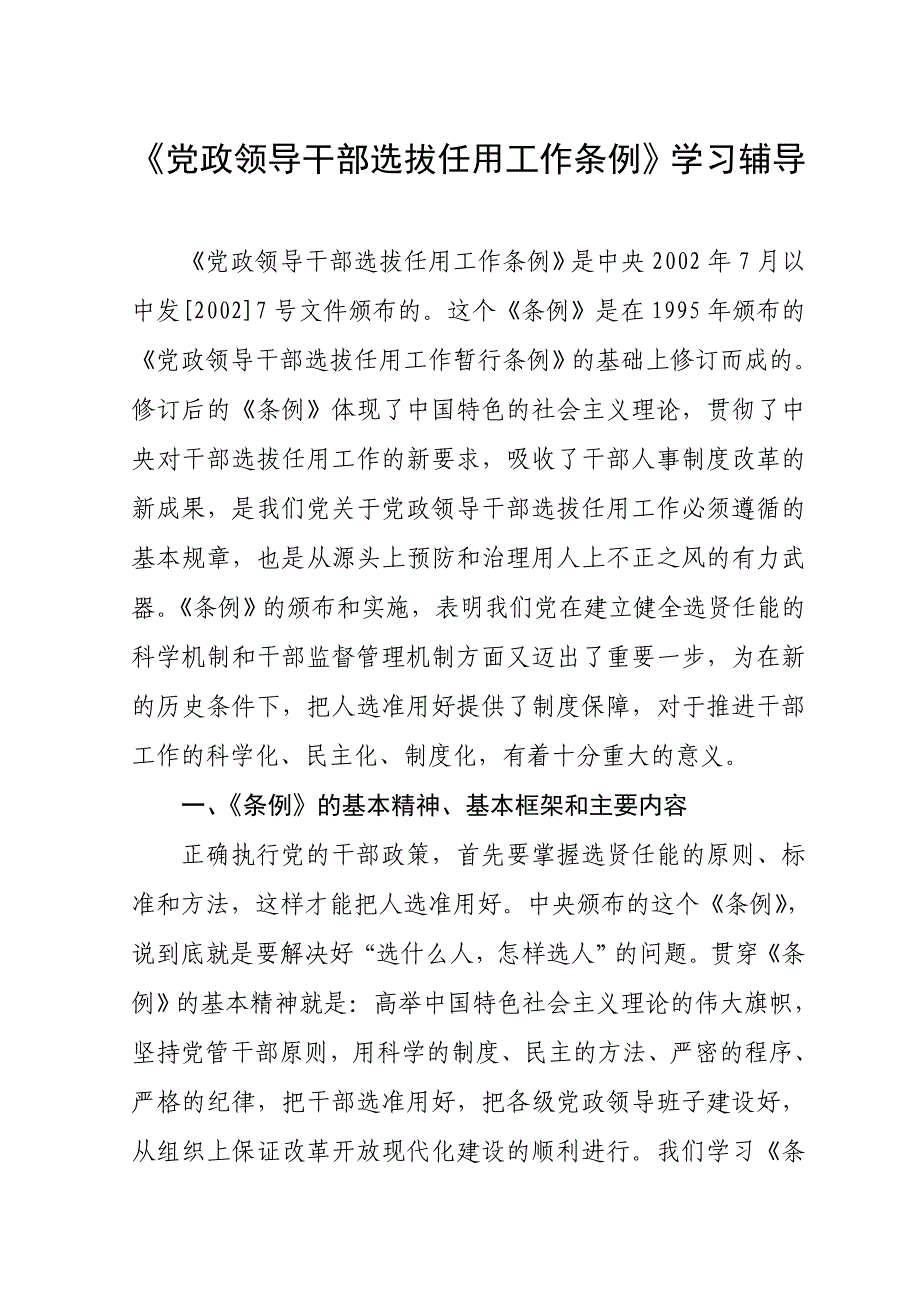 《党政领导干部选拔任用工作条例》学习辅导
《党政领导干部选拔任用工作条例》是中央 2002 年 7 月以
中发[2002]7 号文件颁布的。这个《条例》是在 1995 年颁布的
《党政领导干部选拔任用工作暂行条例》的基础上修订而成的。
修订后的《条例》体现了中国特色的社会主义理论，贯彻了中
央对干部选拔任用工作的新要求，吸收了干部人事制度改革的
新成果，是我们党关于党政领导干部选拔任用工作必须遵循的
基本规章，也是从源头上预防和治理用人上不正之风的有力武
器。《条例》的颁布和实施，表明我们党在建立健全选贤任能的
科学机制和干部监督管理机制方面又迈出了重要一步，为在新
的历史条件下，把人选准用好提供了制度保障，对于推进干部
工作的科学化、民主化、制度化，有着十分重大的意义。
一、《条例》的基本精神、基本框架和主要内容
正确执行党的干部政策，首先要掌握选贤任能的原则、标
准和方法，这样才能把人选准用好。中央颁布的这个《条例》，
说到底就是要解决好“选什么人，怎样选人”的问题。贯穿《条
例》的基本精神就是：高举中国特色社会主义理论的伟大旗帜，
坚持党管干部原则，用科学的制度、民主的方法、严密的程序、
严格的纪律，把干部选准用好，把各级党政领导班子建设好，
从组织上保证改革开放现代化建设的顺利进行。我们学习《条